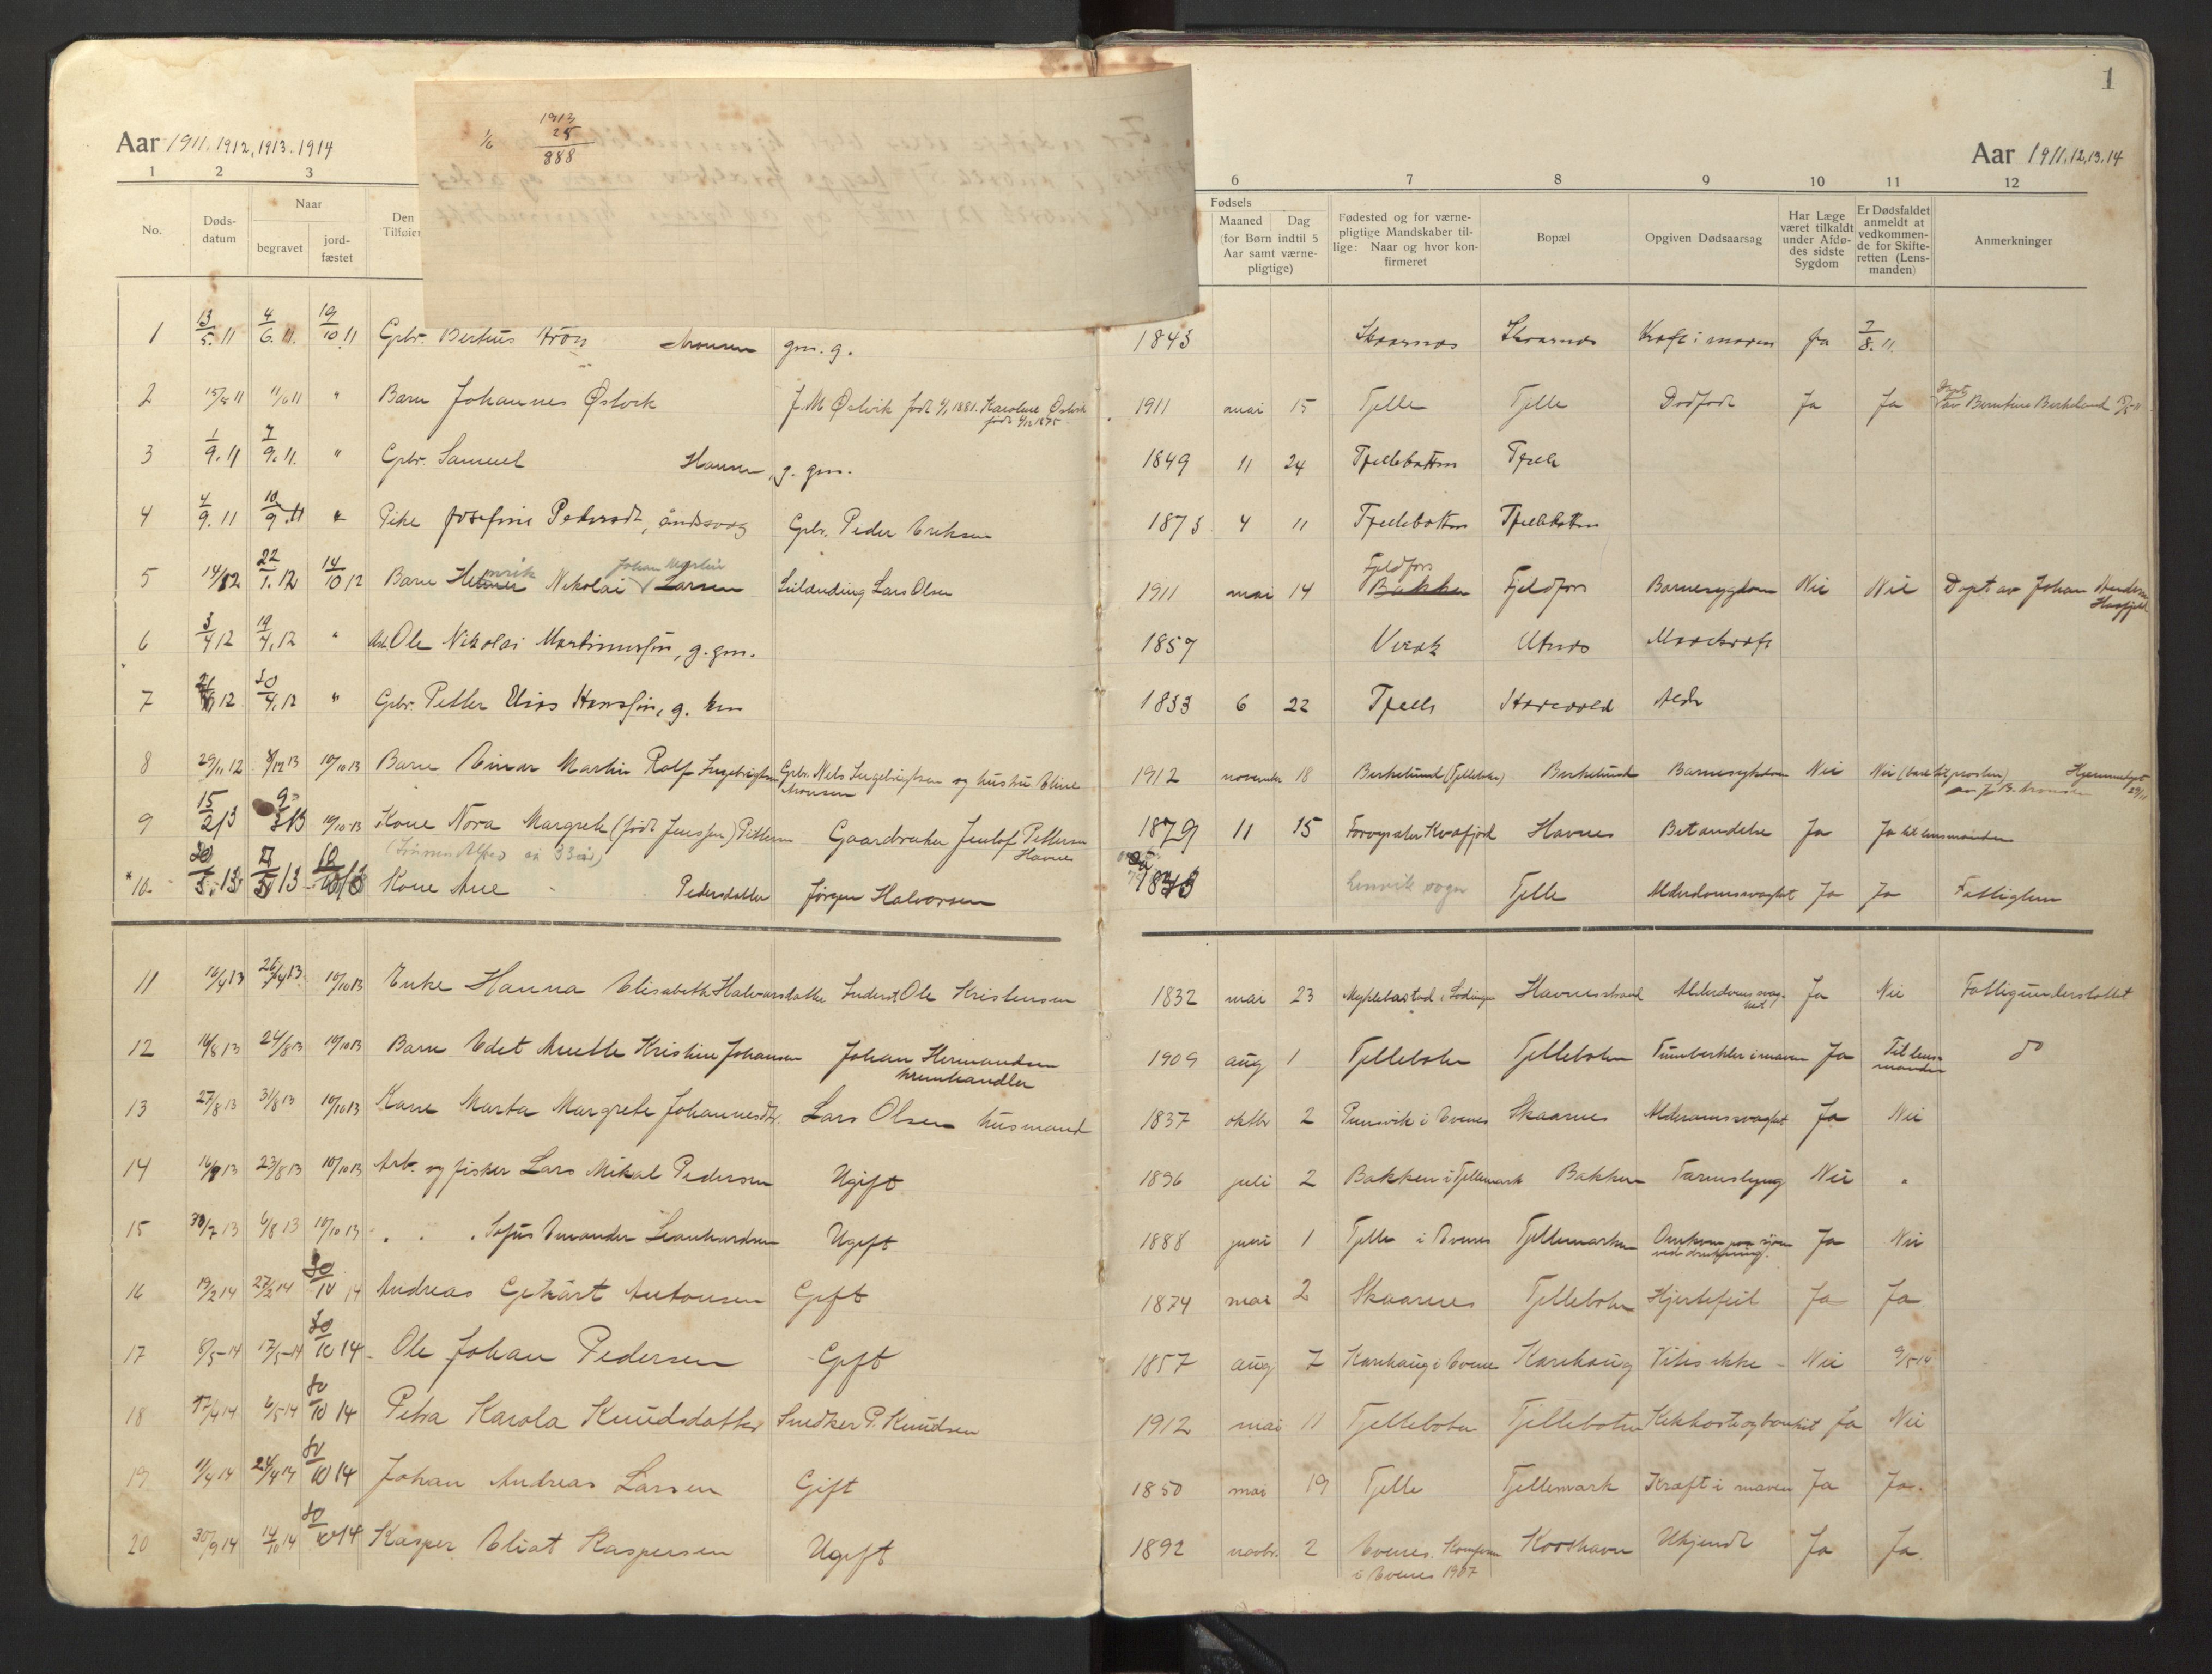 1
1913
25
1/6
888
Aar 1911, 1912, 1913. 1914
Aar 1911, 12, 13, 14
1 2 3
6 7 8 9 10 11 12
No.
Døds-
datum
Naar
begravet
jord-
fæstet
Den
Fødsels
Maaned Dag
(for Børn indtil 5
Aar samt værne-
pligtige)
Fødested og for værne-
pligtige Mandskaber til-
lige: Naar og hvor kon-
firmeret
Bopæl
Opgiven Dødsaarsag
Har Læge
været tilkaldt
under Afdø-
des sidste
Sygdom
Er Dødsfaldet
anmeldt at
vedkommen-
de for Skifte-
retten (Lens-
manden)
Anmerkninger
1 13/5. 11 4/6. 11. 19/10 11 Gbr. Bertius Aronsen gm. g. 1843 Skaarnes Skaarnes Kræft i maven Ja 7/8. 11.
2 15/5 11 11/6 11 " Barn Johannes Østvik J. M. Østvik født 1881. Karoline Østvik 1911 mai 15 Tjelle Tjelle Dødfødt Ja Ja av Berntine Berkeland
3 1/9. 11 7/9. 11. " Gbr. Samuel Hansen, g. gm. 1849 11 24 Tjellebotten Tjelle
4 4/9. 11 10/9. 11 " Pike Josefine Pedersdt, åndssvag Gbr. Peder Eriksen 1873 4 11 Tjellebotten Tjellebotten
5 14/1 12 22/1. 12 14/10 12 Barn Henrik Nikolai Johan Martin Larsen Lars Olsen 1911 mai 14 Fjeldfors Bakken Fjeldfors Barnesygdom Nei Nei Døpt av Johan
6 3/4 12 19/4. 12 " Ole Nikolai Martinussøn, g. gm. 1857 Virak Utnes Mavekræft
7 12 30/4. 12 " Gbr. Petter Urias Hanssøn, g. 1833 6 22 Tjelle Alder
8 29/11 12 8/12 13 10/10 13 Barn Einar Martin Rolf Ingebrigtsen Gbr. Nils Ingebrigtsen og hustru Eline Aronsen 1912 november 18 Berkelund (Tjellebotn) Berkelund Barnesykdom Nei Nei Hjemmedøpt av J. B. Aronsen 29/11
9 15/2 13 9/3 13 10/10 13 Kone Nora Margrete (født Jenssen) Pettersen Gaardbruker Jentof Pettersen Havnes 1879 11 15 Kvæfjord Havnes Betændelse Ja Ja til lensmanden
* 10. 13 13 Kone Ane Pedersdatter Jørgen Halvorsen Lenvik sogn Tjelle Alderdomssvaghet Ja Ja Fattiglem
11 16/4 13 26/4 13. 10/10 13 Enke Hanna Elisabeth Halvorsdatter Inderst Ole Kristensen 1832 mai 23 Myklebostad i Lødingen Havnesstrand Alderdomssvaghet Ja Nei Fattigunderstøttet
12 16/8 13 24/8 13 10/10 13 Barn Edet Anette Kristine Johansen Johan Hermandsen kremhandler 1909 aug 1 Tjellebotn Tjellebotn Tumberkler i maven Ja Til lensmanden do
13 27/8 13 31/8 13 10/10 13 Kone Marta Margrete Johannesdtr. Lars Olsen husmand 1837 oktbr 2 i Evenes Skaarnes Alderdomssvaghet Ja Nei
14 16/8 13 23/8 13 10/10 13 Arb. og fisker Lars Mikal Pedersen Ugift 1896 juli 2 Bakken i Tjellemark Bakken Tarmslyng Nei "
15 30/7 13 6/8 13 10/10 13 " " " Sofus Amandus Leonhardsen Ugift 1888 juni 1 Tjelle i Evenes Tjellemarken Omkom paa sjøen ved drukning. Ja Nei
16 19/2 14 27/2 14 30/10 14 Andreas Gehart Antonsen Gift 1874 mai 2 Skaarnes Tjellebotn Hjertefeil Ja Ja
17 8/5-14 17/5-14 30/10 14 Ole Johan Pedersen Gift 1857 aug 7 Karihaug i Evenes Karihaug Vites ikke - Nei 9/5 14
18 17/4 14 6/5 14 30/10 14 Petra Karola Knudsdatter Snedker P. Knudsen 1912 mai 11 Tjellebotn Tjellebotn Kikhoste og bronkit Ja Nei
19 11/4 14 24/4 14 30/10 14 Johan Andreas Larsen Gift 1850 mai 19 Tjelle Tjellemark Kræft i maven Ja Ja.
20 30/9 14 14/10 14 30/10 14 Kasper Eliot Kaspersen Ugift 1892 novbr. 2 Evenes. Konfirm i Evenes 1907 Korshavn Ukjendt Ja Ja